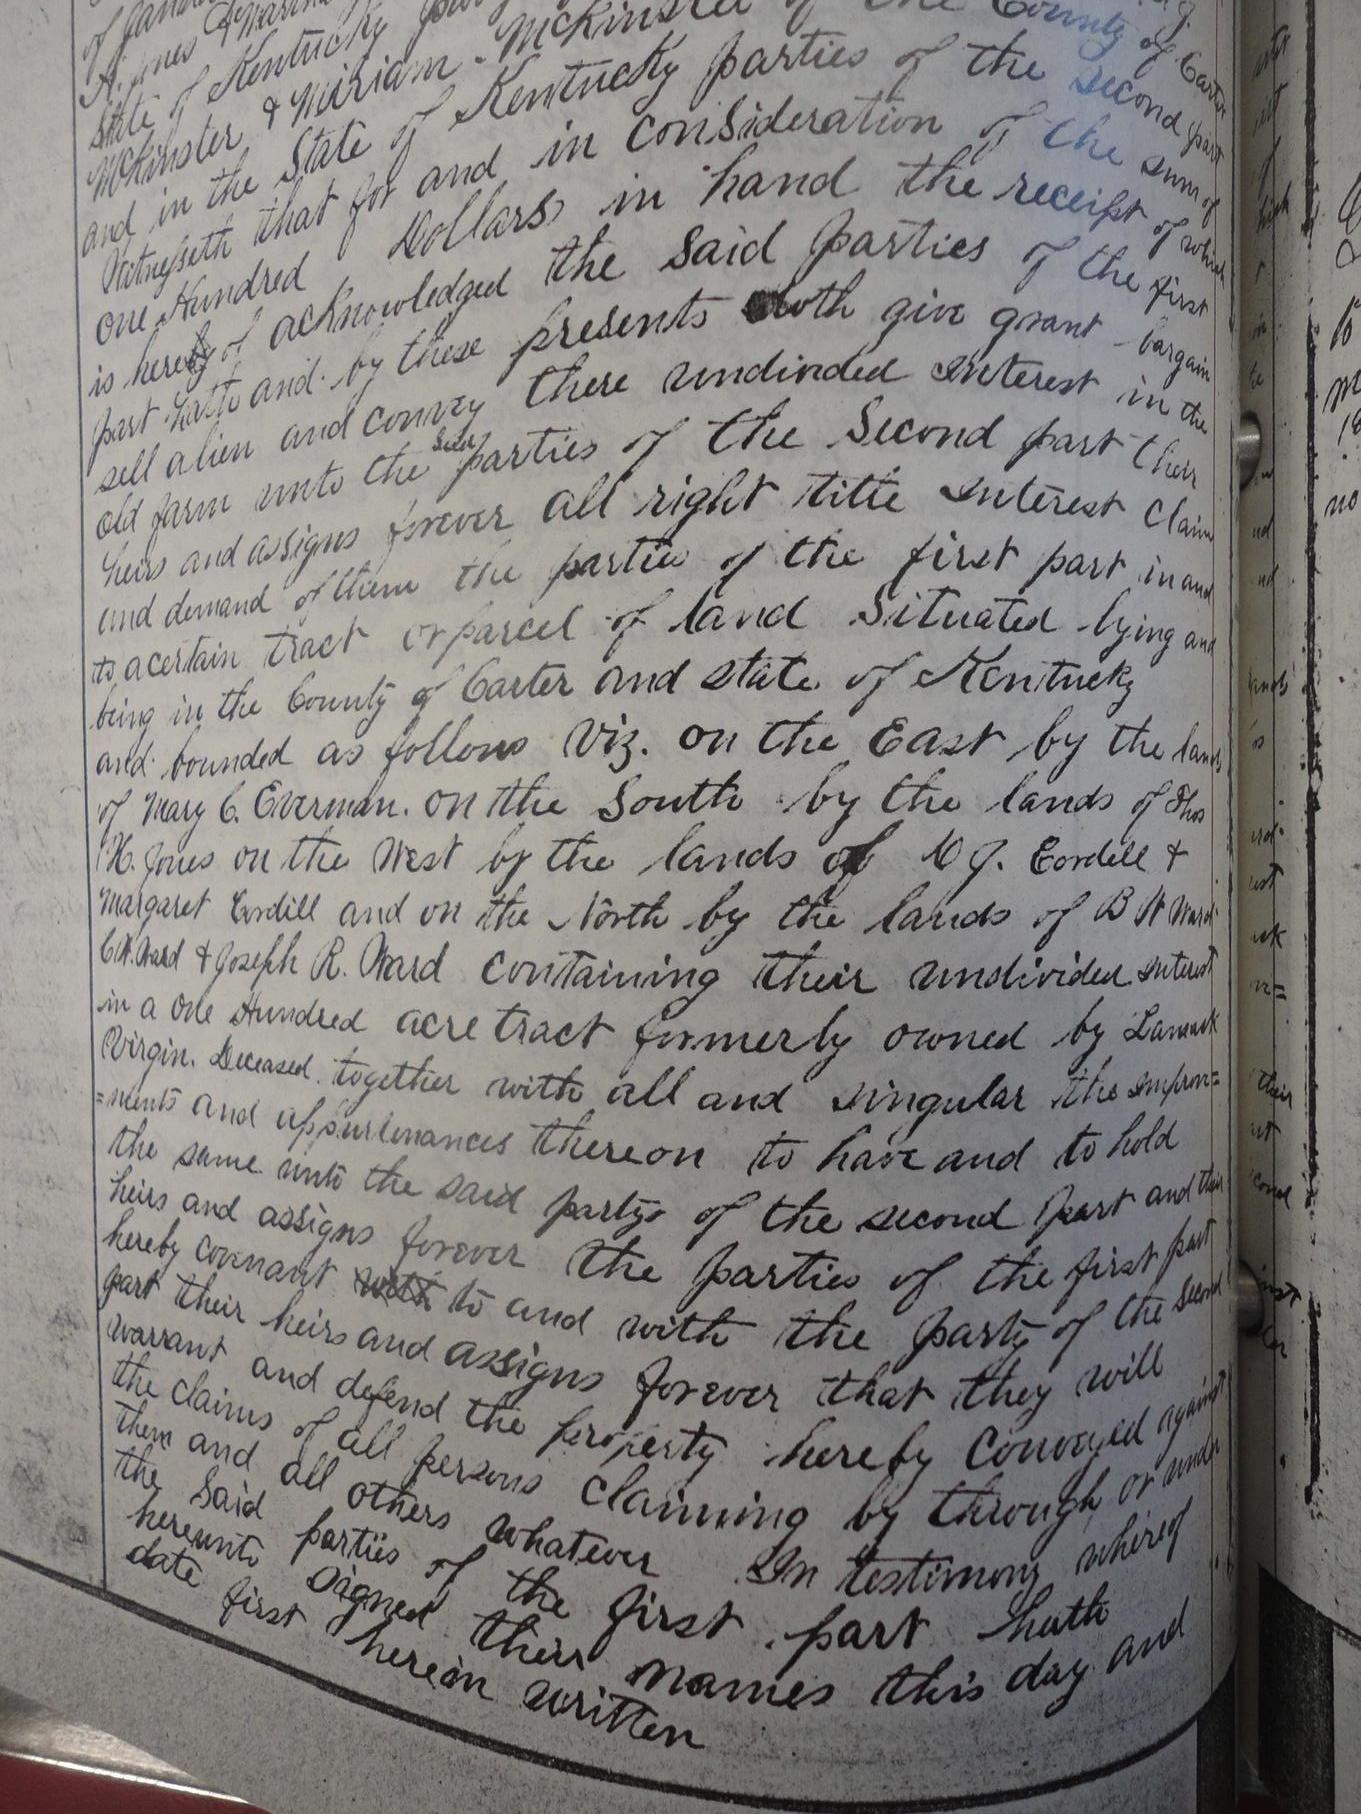 of
H. Jones &
State of Kentucky
Mckinster & Miriam Mckinster of the County of Carter
and in the State of Kentucky parties of the second part
Witnesseth that for and in consideration of the sum of
one Hundred Dollars in hand the receipt of which
is hereby of acknowledged the said parties of the first
part hath and by these presents doth give grant bargain
sell alien and convey there undivided interest in the
old farm unto the said parties of the Second part their
heirs and assigns forever all right title interest claim
and demand of them the partie of the first part in and
to a certain tract or parcel of land situated lying and
being in the County of Carter and state of Kentucky
and bounded as follows Viz. on the East by the lands
of Mary C. Everman. on the South by the lands of Thos
H. Jones on the West by the lands of J. Cordell &
Margaret Cordill and on the North by the lands of B W Ward
C.W. Ward & Joseph R. Ward containing their undivided interest
in a one Hundred acre tract formerly owned by
Virgin. Deceased. together with all and singular the improv=
=ments and appurtenances thereon to have and to hold
the same unto the said partys of the second part and their
heirs and assigns forever the parties of the first part
hereby covenant to and with the party of the second
part their heirs and assigns forever that they will
warrant and defend the property hereby conveyed against
the claims of all persons claiming by through or under
them and all others whatever In testimony whereof
the said parties of the first part hath
hereunto signed their names this day and
date first herein written